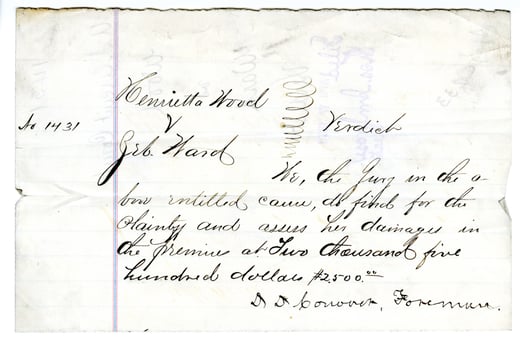 Henrietta Wood
No 1431 V Verdict
Zeb. Ward
We, the Jury in the a-
bove entitled cause, do find for the
Plaintiff and assess her damages in
the premises at Two thousand five
hundred dollars $2500.00
Foreman.